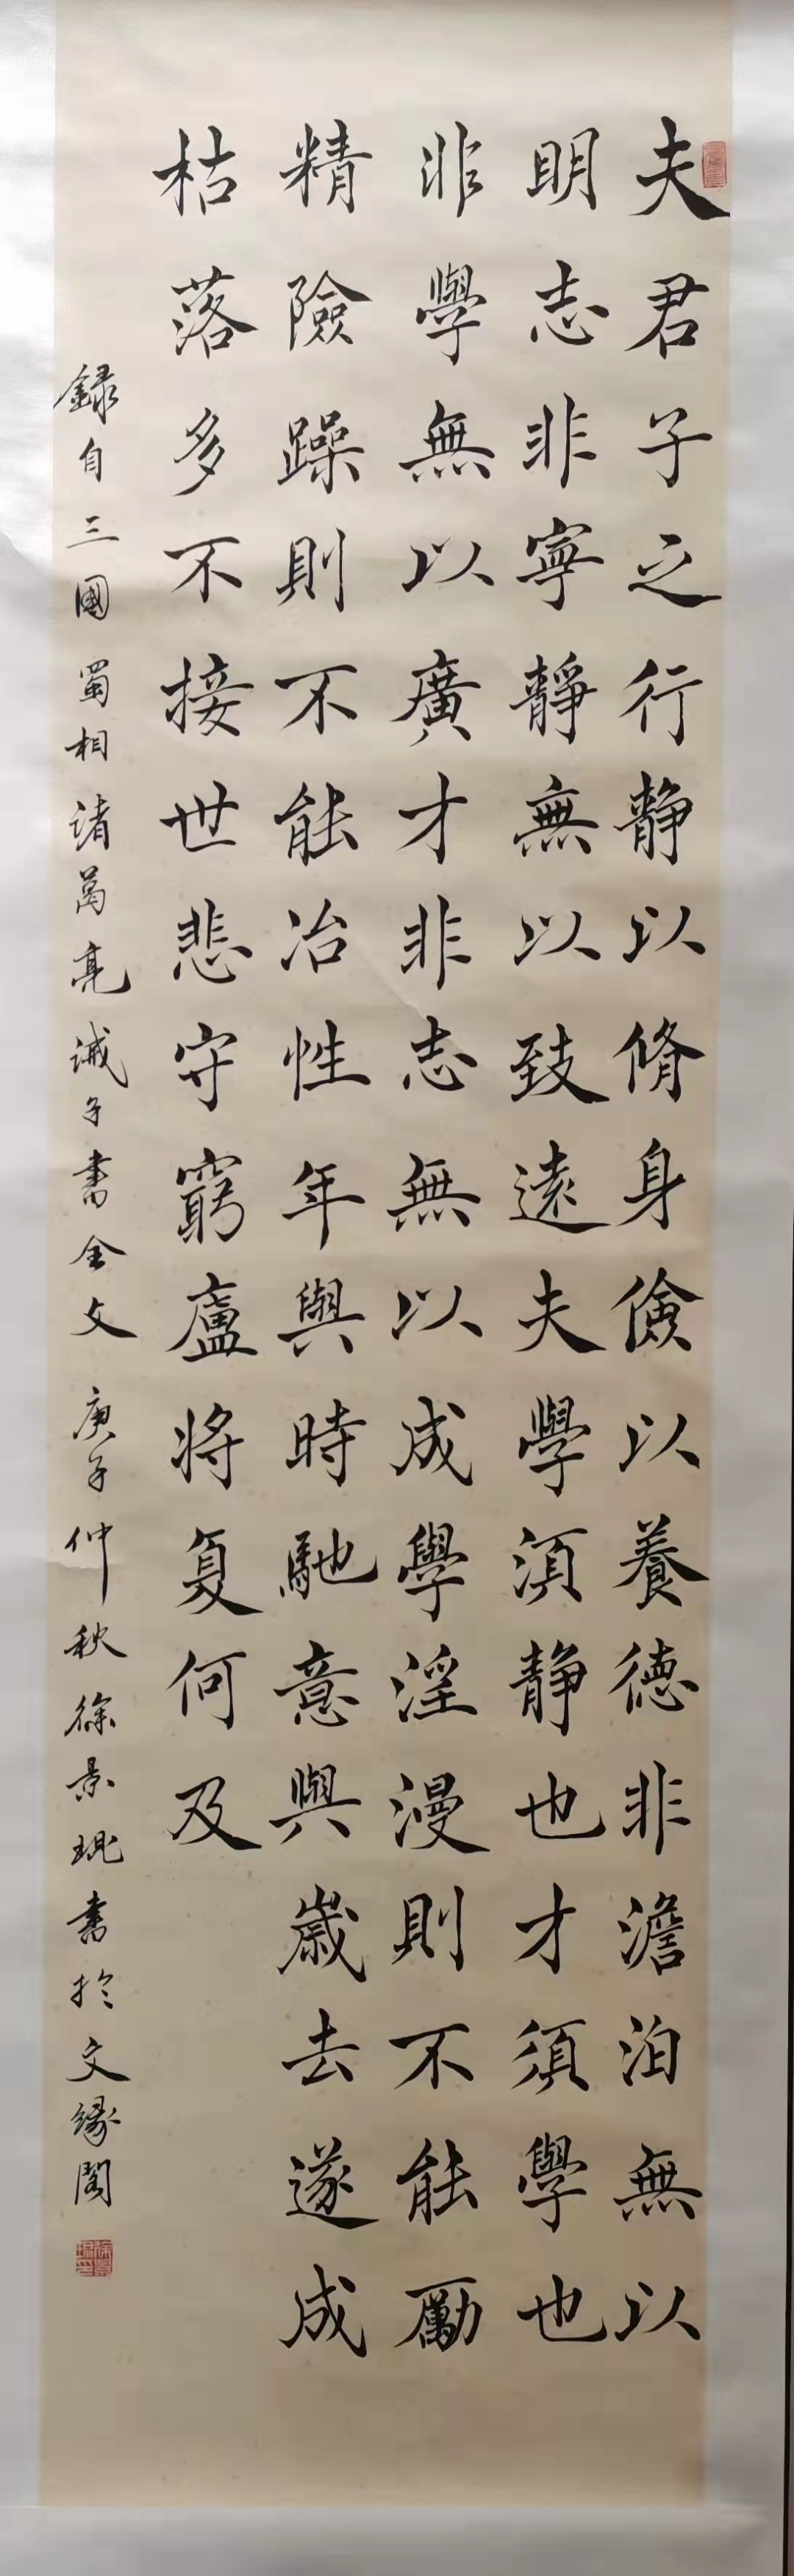 夫君子之行静以脩身儉以養德非澹泊無以
明志非寧靜無以致遠夫學須静也才須學也
非學無以廣才非志無以成學淫漫則不能勵
精險躁則不能冶性年與時馳意與歲去遂成
枯落多不接世悲守窮廬将复何及
録自三國蜀相诸葛亮诫子書全文庚子仲秋徐景珧書於文缘閣